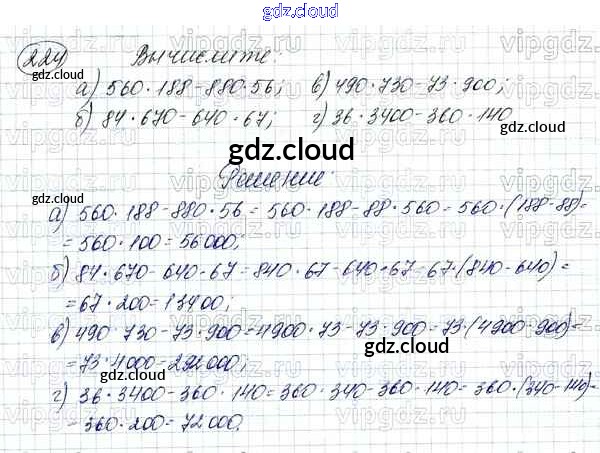 gdz.cloud
224 Вычислите:
gdz.cloud
а) 560·188-880·56; в) 490·730-73·900;
б) 84·670-640·67; г) 36·3400-360·140
gdz.cloud
gdz.cloud
Решение:
а) 560·188-880·56=560·188-88·560=560·(188-88)=
=560·100=56000;
б) 84·670-640·67=840·67-640·67=67·(840-640)=
=67·200=13400;
в) 490·730-73·900=4900·73-73·900=73·(4900-900)=
=73·4000=292000;
gdz.cloud
gdz.cloud
г) 36·3400-360·140=360·340-360·140=360·(340-140)=
=360·200=72000.